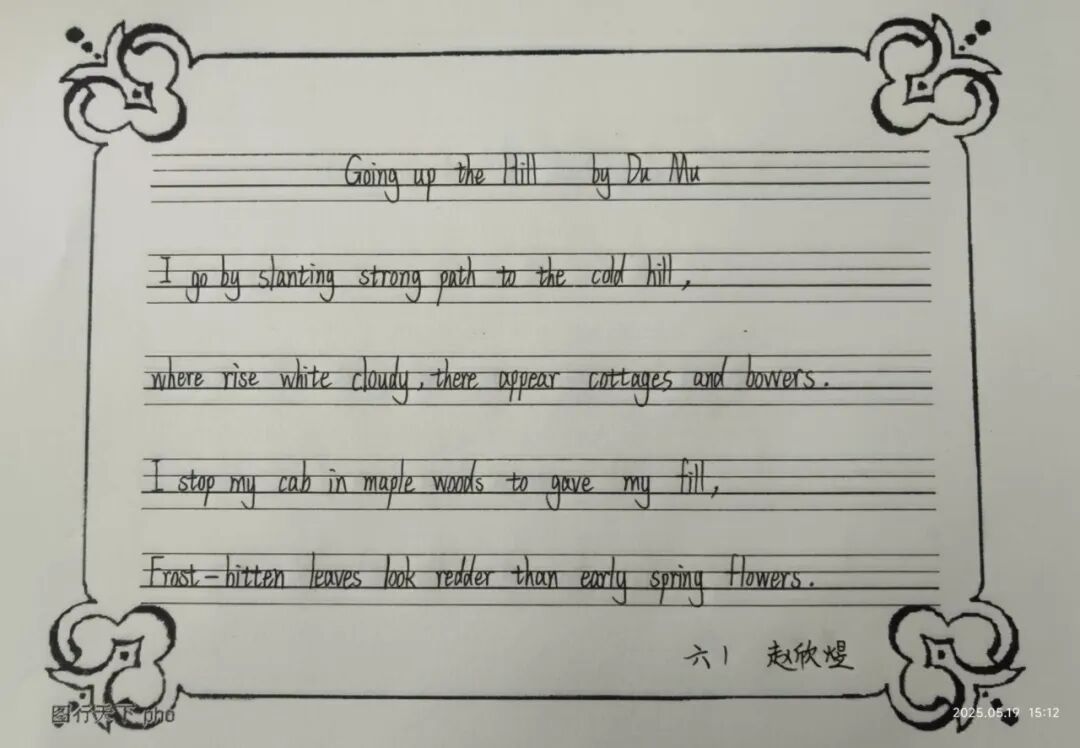 Going up the Hill by Du Mu
I go by slanting strong path to the cold hill,
where rise white cloudy, there appear cottages and bowers.
I stop my cab in maple woods to gave my fill,
Frost-bitten leaves look redder than early spring flowers.
六1 赵欣煜
图行天下 pho
2025.05.19 15:12